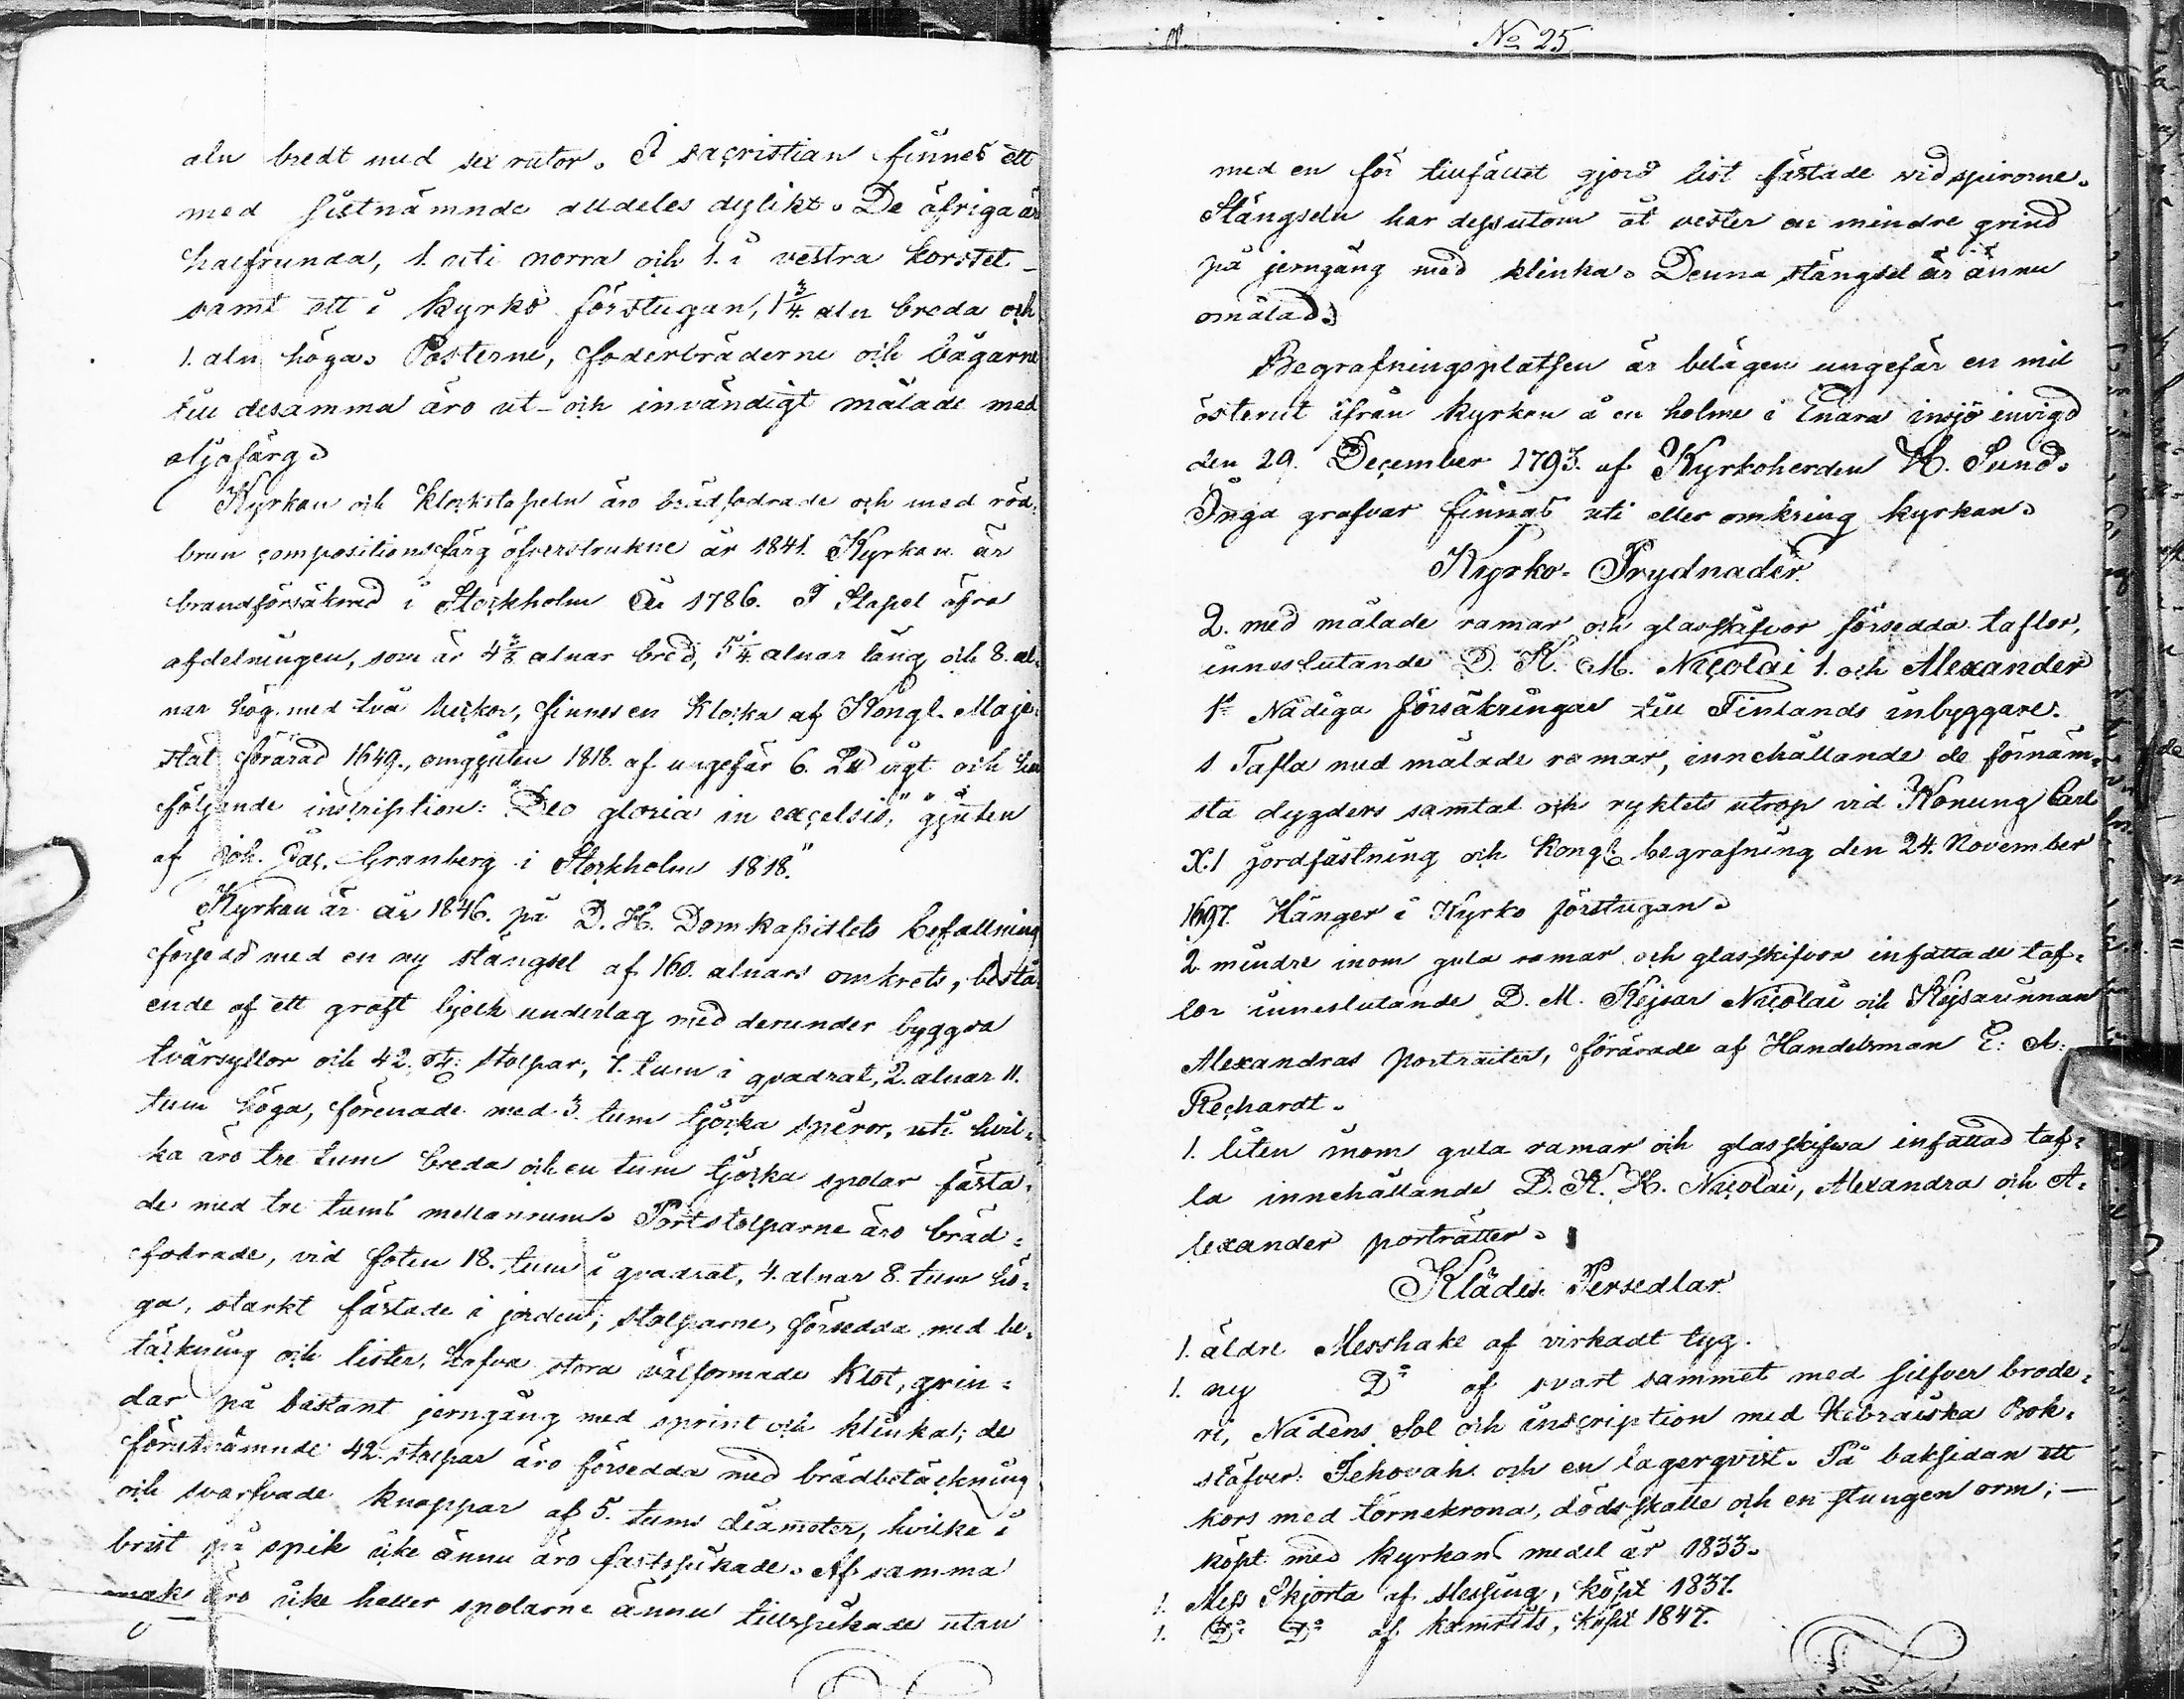 aln bredt med sex rutor. I sacristian finnes ett
med sistnämnde alldeles dylikt. De öfriga är
halfrunda, 1. uti norra och 1. i vestra korstet
samt ett i kyrko förstugan, 1 3/4. aln breda och
1. aln höga. Posterne, foderbräderne och bågarne
till desamma äro ut- och invändigt målade med
oljofärg.
Kyrkan och Klockstapeln äro brädfodrade och med röd-
brun compositionsfärg öfverstrukne år 1841. Kyrkan är
brandförsäkrad i Stockholm år 1786. I Stapel öfra
afdelningen, som är 4 3/8 alnar bred, 5 1/4. alnar lång och 8. al-
nar hög med två luckor, finnes en Klocka af Kongl. Maje-
stät förärad 1649., omgjuten 1818. af ungefär 6. vigt och
följande inscription: "Deo gloria in excelsis," "gjuten
af Joh. Jac. Granberg i Stockholm 1818."
Kyrkan är år 1846. på D. H. Domkapitlets befallning
försedd med en ny stängsel af 160. alnars omkrets, bestå-
ende af ett groft bjelk underlag med derunder byggda
tvärsyllor och 42. st: stolpar, 7. tum i qvadrat, 2. alnar 11.
tum höga, förenade med 3. tum tjocka spiror, uti hvil-
ka äro tre tum breda och en tum tjocka spolar fästa-
de med tre tums mellanrum. Portstolparne äro bräd-
fodrade, vid foten 18. tum i qvadrat, 4. alnar 8. tum hö-
ga, starkt fästade i jorden; stolparne, försedda med be-
täckning och lister, hafva stora välformade klot, grin-
dar på bastant jerngång med sprint och klinka; de
förutnämnde 42. stolpar äro försedda med brädbetäckning
och svarfvade knoppar af 5. tums diameter, hvilka i
brist på spik icke ännu äro fastspikade. Af samma
orsak äro icke heller spolarne ännu tillspikade utan
No 25
med en för tillfället gjord list fästade vid spirorne.
Stängseln har dessutom åt vester en mindre grind
på jerngång med klinka. Denna stängsel är ännu
omålad.
Begrafningsplatsen är belägen ungefär en mil
österut ifrån kyrkan å en holme i Enara insjö invigd
den 29. December 1793. af Kyrkoherden H. Sund.
Inga grafvar finnas uti eller omkring kyrkan.
Kyrko-Prydnader.
2. med målade ramar och glasskifvor försedda taflor,
inneslutande D. K. M. Nicolai 1. och Alexander
1s Nådiga försäkringar till Finlands inbyggare.
1 Tafla med målade ramar, innehållande de förnäm-
sta dygders samtal och ryktets utrop vid Konung Carl
X.I jordfästning och kongl. begrafning den 24. November
1697. Hänger i Kyrko förstugan.
2 mindre inom gula ramar och glasskifvor infattade taf-
lor inneslutande D. M. Kejsar Nicolai och Kejsarinnan
Alexandras portraiter, förärade af Handelsman E. A.
Rechardt.
1. liten inom gula ramar och glasskifva infattad taf-
la innehållande D. K. H. Nicolai, Alexandra och A-
lexander porträtter.
Klädes Persedlar
1. äldre Messhake af virkadt tyg.
1. ny Do af svart sammet med silfver brode-
ri, Nådens Sol och inscription med Hebraiska Bok-
stäfver: Jehovah och en lagerqvist. På baksidan ett
kors med törnekrona, dödsskalle och en stungen orm; —
köpt med kyrkans medel år 1833.
1. Mess Skjorta af slessing, köpt 1837.
1. Do Do af kamrits, köpt 1847.